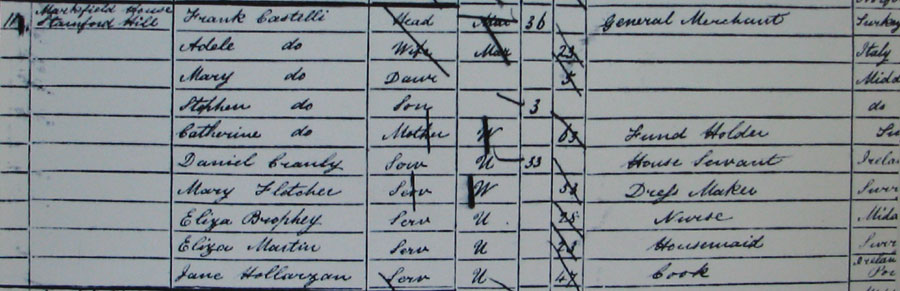 Marksfield House
Stamford Hill Frank Castelli Head Mar 36 General Merchant Turkey
Adele do Wife Mar 23 Italy
Mary do Daur 5 Midd
Stephen do Son 3 do
Catherine do Mother W 63 Fund Holder
Daniel Cranly Serv U 33 House Servant Irelan
Mary Fletcher Serv W Dress Maker Surr
Eliza Brophey Serv U Nurse Midd
Eliza Martin Serv U Housemaid Surr
Jane Serv U 47 Cook Irelan